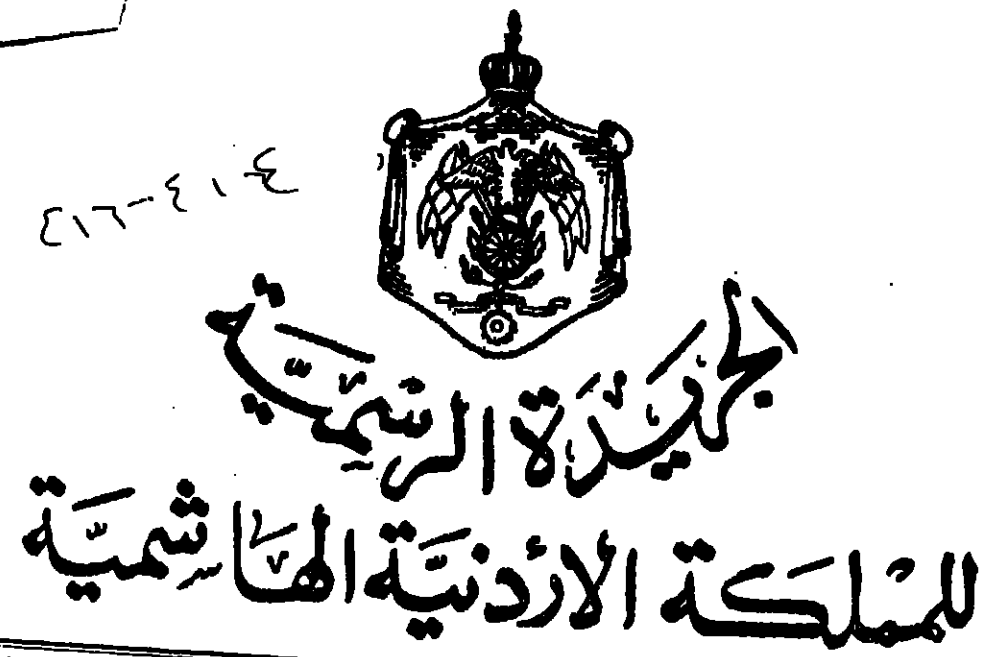 ٤١٦-٤١٤
الجريدة الرسمية
للمملكة الأردنية الهاشمية